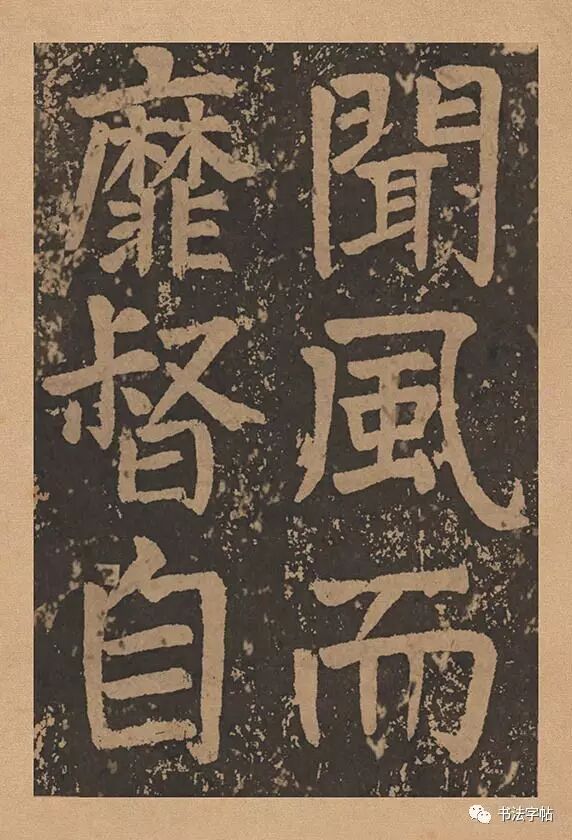 聞風而
靡督自
书法字帖